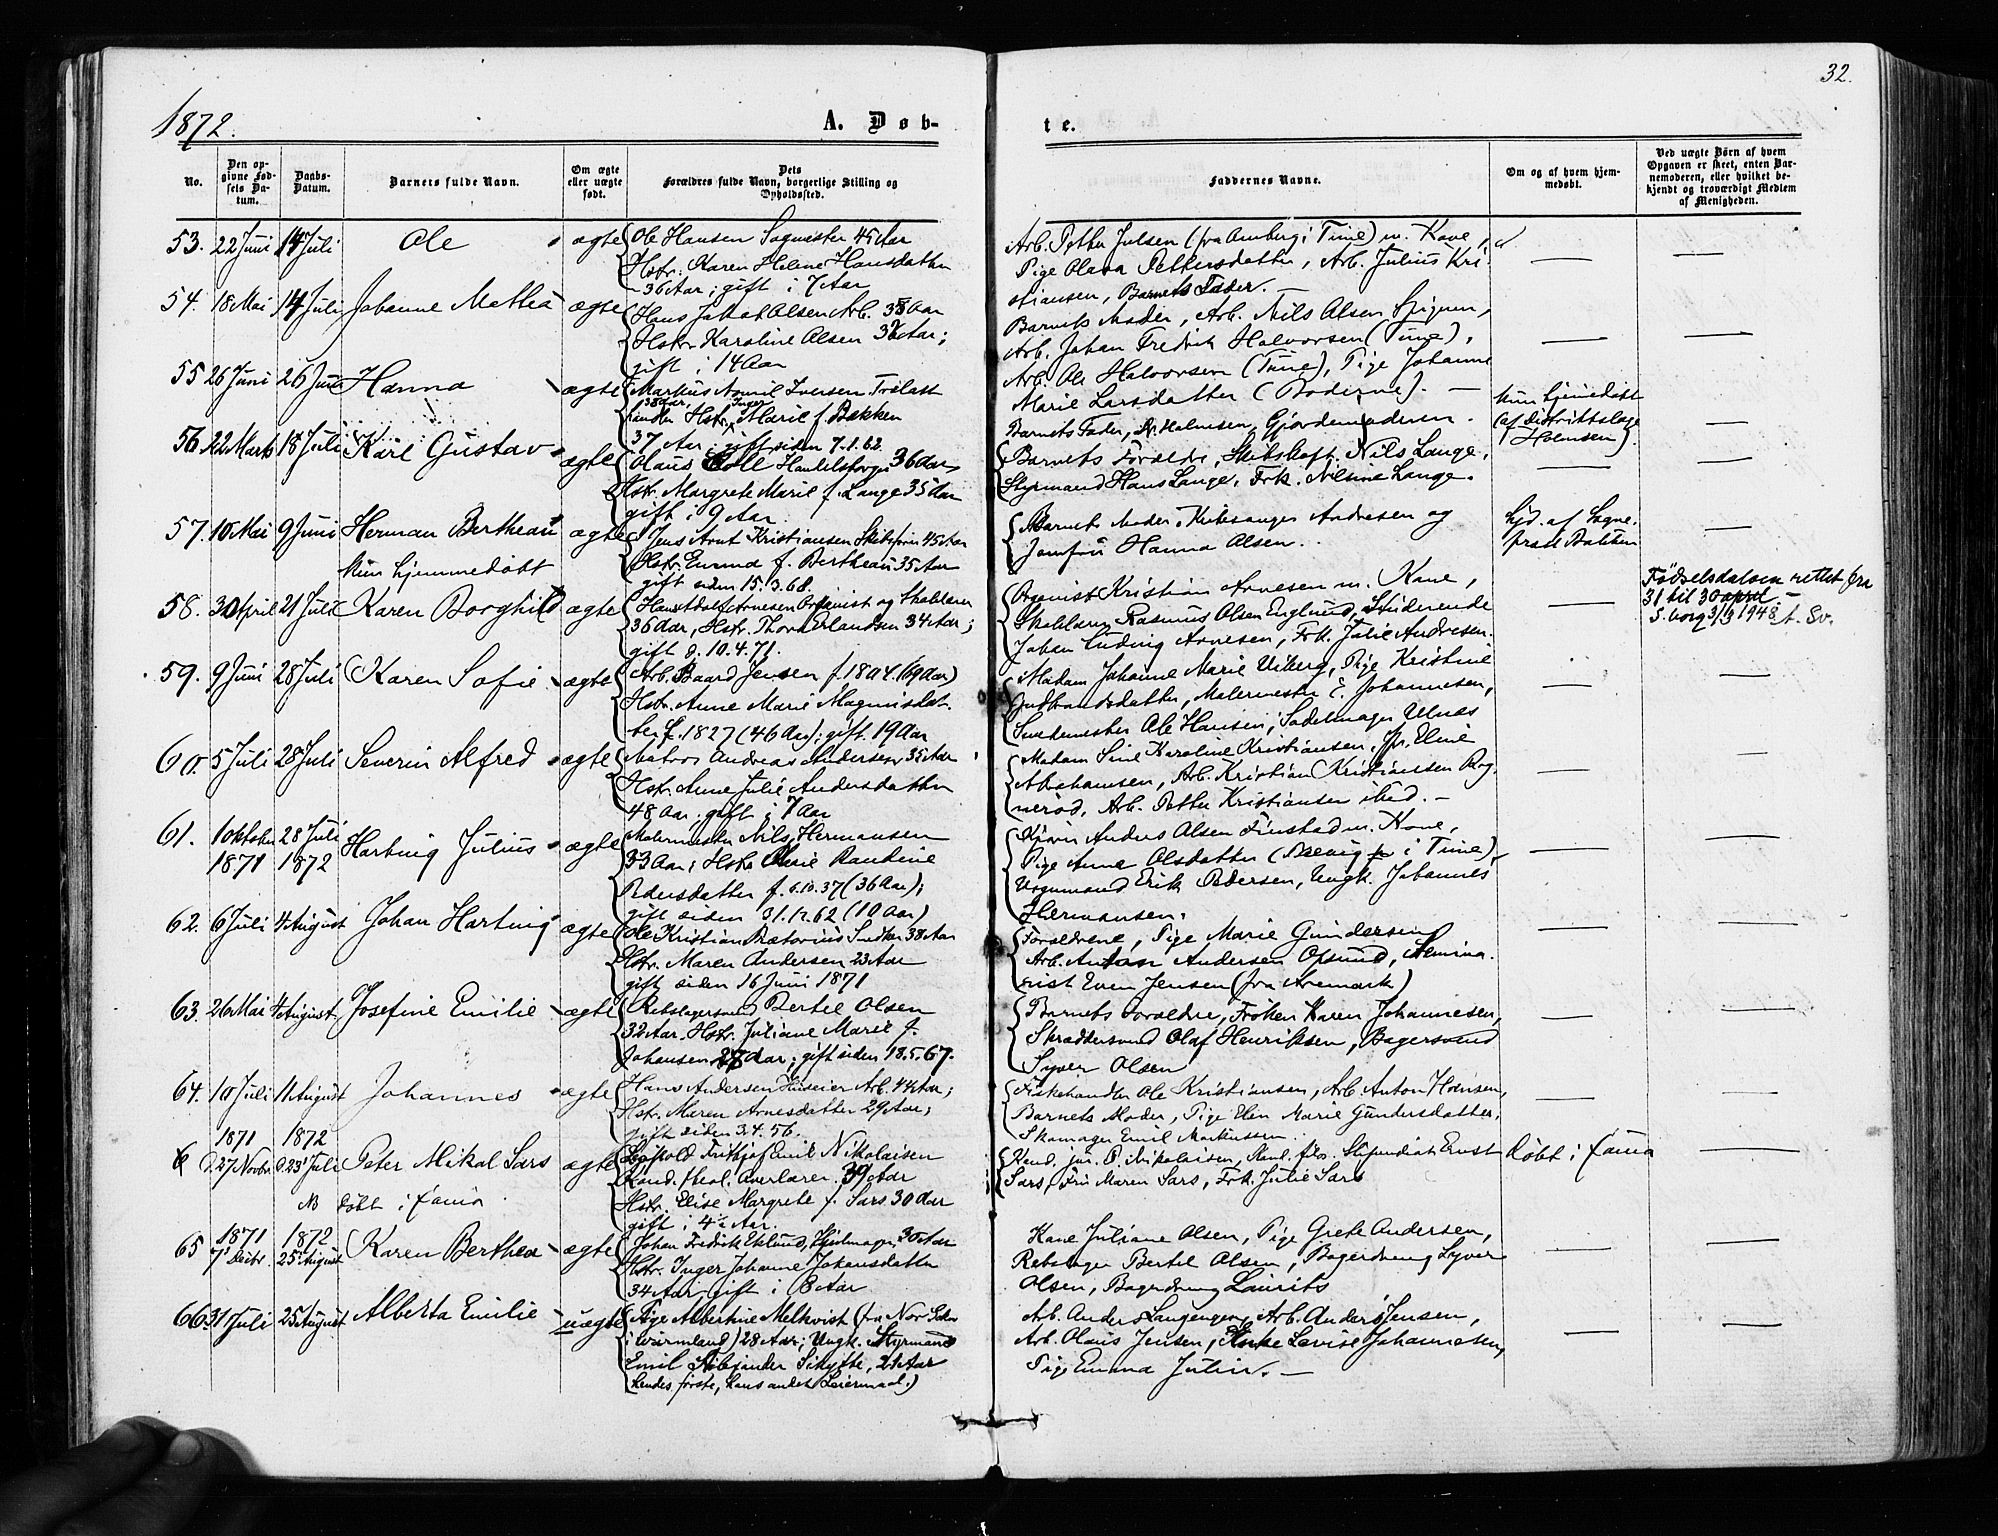 32.
1872.
A. Døb-
te.
No.
Den op-
givne Fød-
sels Da-
tum.
Daabs-
Datum.
Barnets fulde Navn.
Om ægte
eller uægte
født.
Dets
Forældres fulde Navn, borgerlige Stilling og
Opholdssted.
Faddernes Navne.
Om og af hvem hjem-
medøbt.
Ved uægte Børn af hvem
Opgaven er skeet, enten Bar-
nemoderen, eller hvilket be-
kjendt og troværdigt Medlem
af Menigheden.
53. 22 Juni 14 Juli Ole ægte
Ole Hansen 45 Aar
Hstr. Karen Helene Hansdatter
36 Aar; gift i 7 Aar
Arb. Petter Julsen (fra i Tune) m. Kone,
Pige Olava Pettersdatter, Arb. Julius Kri-
stiansen, Barnets Fader. —
54. 18 Mai 14 Juli Johanne Mathea ægte
Hans Jakob Olsen Arb. 35 Aar
Hstr. Karoline Olsen Aar;
gift i 14 Aar
Barnets Moder, Arb. Nils Olsen
Arb. Johan Fredrik Halvorsen (Tune),
Arb. Ole Halvorsen (Tune), Pige Johanne
Marie Larsdatter —
55 26 Juni 26 Juni Hanna ægte
Markus Iversen Trælast
handler 38 Aar, Hstr. Inger Marie f. Bakken
37 Aar; gift siden 7.1.62.
Barnets Fader, Dr. Holmsen, Gjordemoderen.
Kun hjemmedøbt
(af Distriktslæge
Holmsen).
56. 22 Marts 18 Juli Karl Gustav ægte
Olaus Handelsborger 36 Aar
Hstr. Margrete Marie f. Lange 35 Aar
gift i 9 Aar.
Barnets Forældre, Skibskapt. Nils Lange,
Styrmand Hans Lange, Frk. Nilsine Lange.
57. 10 Mai 9 Juni Herman Bertheau ægte
Kun hjemmedøbt
Jens Arnt Kristiansen Skibsfører 45 Aar
Hstr. Emma f. Bertheau 35 Aar
gift siden 15.3.68.
Barnets Moder, Kirkesanger Andresen og
Jomfru Hanna Olsen.
hjd. af Sogne-
præst Bakken
58. 30 April 21 Juli Karen Borghild ægte
Arnesen Organist og Skolelærer
36 Aar, Hstr. Thora Erlandsen 34 Aar;
gift d. 10.4.71.
Organist Kristian Arnesen m. Kone,
Skolelærer Rasmus Olsen Englund, Studerende
Johan Ludvig Arnesen, Frk. Julie Andresen.
Fødselsdatoen rettet fra
31 til 30 april —
S.borg 31/3 1948 A. Sv.
59. 9 Juni 28 Juli Karen Sofie ægte
Arb. Baard Jensen f. 1804 (69 Aar)
Hstr. Anne Marie Magnusdat-
ter f. 1827 (46 Aar); gift 19 Aar
Madam Johanne Marie Viberg, Pige Kristine
Gulbrandsdatter, Malermester E. Johannesen,
Smedemester Ole Hansen, Sadelmager Ulnæs
60. 5 Juli 28 Juli Severin Alfred ægte
Matros Andreas Andersen 35 Aar
Hstr. Anne Julie Andersdatter
48 Aar. gift i 7 Aar
Madam Sine Karoline Kristiansen, Eline
Abrahamsen, Arb. Kristian Kristiansen Rog-
nerød, Arb. Petter Kristiansen ibid. —
61. 1 Oktober
1871
28 Juli
1872
Hartvig Julius ægte
Malermester Nils Hermansen
33 Aar; Hstr. Randine
Pedersdatter f. 5.10.37 (36 Aar);
gift siden 31.12.62 (10 Aar)
Anders Olsen Finstad m. Kone,
Pige Anne Olsdatter ( i Tune),
Vognmand Erik Pedersen, Ungk. Johannes
Hermansen.
62. 6 Juli 4 August Johan Hartvig ægte
Ole Kristian Prætorius Snedker 38 Aar
Hstr. Maren Andersen 23 Aar
gift siden 16 Juni 1871
Forældrene, Pige Marie Gundersen
Arb. Anton Andersen Opsund, Semina-
rist Even Jensen (fra Aremark)
63. 26 Mai 4 August Josefine Emilie ægte
Rebslagersvend Bertel Olsen
32 Aar. Hstr. Juliane Marie f.
Johansen 27 Aar; gift siden 18.5.67.
Barnets Forældre, Frøken Karen Johannesen,
Skræddersvend Olaf Henriksen, Bagersvend
Syver Olsen
64. 10 Juli 11 August Johannes ægte
Hans Andersen Huseier Arb. 44 Aar;
Hstr. Maren Arnesdatter 29 Aar;
gift siden 3.4.56.
Fiskehandler Ole Kristiansen, Arb. Anton Hansen,
Barnets Moder, Pige Elen Marie Gundersdatter,
Skomager Emil Markussen.
1871 1872
27 Novbr. 23 Juli Peter Mikal Sars ægte
NB døbt i Fana
Leopold Frithjof Emil Nikolaisen
Kand. theol. Overlærer. 39 Aar
Hstr. Elise Margrete f. Sars 30 Aar
gift i 4½ Aar.
Kand. jur. P. Nikolaisen, Kand. filos. Stipendiat Ernst
Sars, Fru Maren Sars, Frk. Julie Sars
Døbt i Fana
65 1871
7 Decbr.
1872
25 August
Karen Berthea ægte
Johan Fredrik Eklund, Hjulmager, 30 Aar
Hstr. Inger Johanne Johansdatter
34 Aar; gift i 8 Aar
Kone Juliane Olsen, Pige Grete Andersen,
Rebslager Bertel Olsen, Bagerdreng Syver
Olsen, Bagerdreng Laurits
66 31 Juli 25 August Alberta Emilie uægte
Pige Albertine Melkvist (fra Nor Sokn
i Wärmland) 28 Aar; Ungk. Styrmand
Emil Alexander Schytte, 21 Aar
(hendes første, hans andet Leiermaal.)
Arb. Anders Langengen, Arb. Anders Jensen,
Arb. Olaus Jensen, Enke Lovise Johannesen,
Pige Emma Julin. —